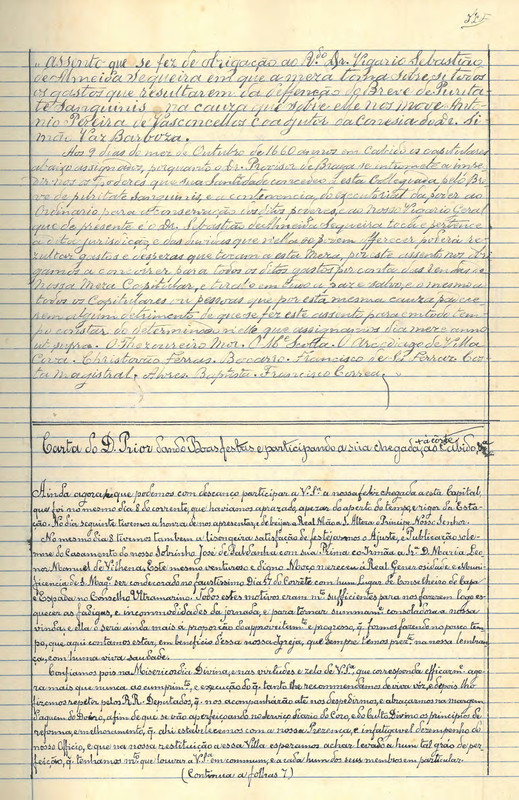 "Assento que se fez de obrigação ao R.do Dr. Vigario Sebastião
de Almeida Sequeira em que a meza toma sobre si todos
os gastos que resultarem da deffenção do Breve de Purita-
te sanguinis na cauza que sobre elle nos move Ant-
nio Pereira de Vasconcellos coadjutor da Conesia do Dr. Si-
mão Vaz Barboza.
Aos 9 dias do mez de Outubro de 1660 annos em Cabido os capitulares
abaixo assignados, porquanto o Sr. Provisor de Braga se intromete a impe-
dir nos os poderes que sua Santidade concedeo a esta Collegiada pelo Bre-
ve de puritate sanguinis e a conteniencia, do executorial da poder ao
Ordinario para a conservação dos ditos poderes, e ao nosso Vigario Geral
que de presente é o Dr. Sebastião de Almeida Sequeira toca e pertence
a esta jurisdição, e das duvidas que nella se podem offerecer poderá re-
zultar gastos e despezas que tocam a esta Meza, por este assento nos obri-
gamos a concorrer para todos os ditos gastos por conta das rendas de
Nossa Meza Capitular, e tiral-o em tudo a paz e salvo, e o mesmo a
todos os Capitulares ou pessoas que por esta mesma cauza padece-
rem algum detrimento de que se fez este assento para em todo tem-
po constar do determinado nelle que assignamos dia mez e anno
ut supra. O Thezoureiro Mor. O Me. Scolla. O Arcediago de Villa
Cova. Christovão Ferras. Bocarro. Francisco de Sá Ferraz. Cos-
ta Magistral. Abreo. Baptista. Francisco Correa.
Carta do D. Prior dando Boas festas e participando a sua chegada (á côrte) ao Cabido.
Ainda agora é que podemos com descanço participar a V.S.as a nossa feliz chegada a esta Capital,
que foi no mesmo dia 8 do corrente, que haviamos aprazado, apezar do aperto do tempo, e rigor da Esta-
ção. No dia seguinte tivemos a honra de nos apresentar, e de beijar a Real Mão a S. Alteza o Principe Nosso Senhor.
No mesmo dia 8 tivemos tambem a lisongeira satisfação de festejarmos o Ajuste, e Publicação sole-
mne do Casamento do nosso Sobrinho José de Saldanha com sua Prima co-Irmãa a Sr.a D. Maria Leo-
nor Manoel de Vilhena. Este mesmo venturoso e digno Moço mereceu á Real Generosidade e Muni-
ficencia de S. Mag.e ser condecorado no faustissimo Dia 17 do Corrente com hum Lugar de Conselheiro de Capa
e Espada no Conselho Ultramarino. Todos estes motivos eram m.to sufficientes para nos fazerem logo es-
quecer as fadigas, e incommodidades da jornada, e para tomar summam.te consoladora a nossa
vinda; e ella o será ainda mais á proporção do aproveitam.to e progresso, q. formos fazendo no pouco tem-
po, que aqui contamos estar, em beneficio dessa nossa Igreja, que sempre temos prez.te na nossa lembran-
ça, com huma viva saudade.
Confiamos pois na Misericordia Divina, e nas virtudes e zelo de V.S.as, que corresponda efficazm.te ago-
ra mais que nunca ao cumprim.to, e execução do q. tanto lhe recommendamos de viva voz, e depois lho
fizemos repetir pelos R.R. Deputados, q. nos acompanhárão até nos despedirmos, e abraçarmos na margem
daquem do Douro, afim de que se vão aperfeiçoando no Serviço diario do Coro, e do Culto Divino os principios de
reforma, e melhoramento, q. ahi estabelecemos com a nossa Prezença, e infatigavel desempenho do
nosso Officio, e que na nossa restituição a essa Villa esperamos achar levado a hum tal gráo de per-
feição, q. tenhamos m.to que louvar a V.S.as em commum, e a cada hum dos seus membros em particular.
(Continúa a folhas 7)